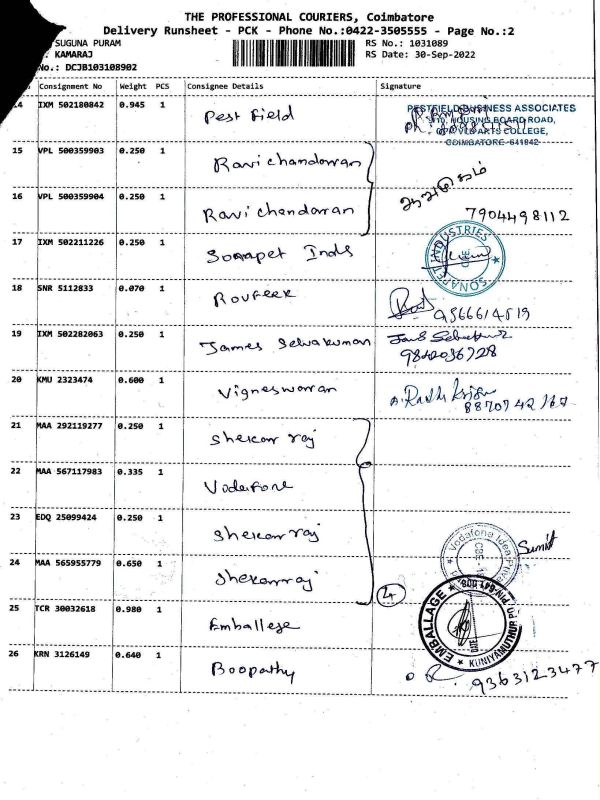 THE PROFESSIONAL COURIERS, Coimbatore
Delivery Runsheet - PCK - Phone No.:0422-3505555 - Page No.:2
SUGUNA PURAM
RS No.: 1031089
KAMARAJ
RS Date: 30-Sep-2022
No.: DCJB103108902
Consignment No Weight PCS Consignee Details Signature
14 IXM 502180842 0.945 1 Pest Field
PESTFIELD BUSINESS ASSOCIATES
HOUSING BOARD ROAD,
ARTS COLLEGE,
COIMBATORE-641042
15 VPL 500359903 0.250 1 Ravi chandarran
16 VPL 500359904 0.250 1 Ravi chandarran
7904498112
17 IXM 502211226 0.250 1 Sonapet Inds
SONAPET INDUSTRIES
CBE
18 SNR 5112833 0.070 1 Roufeek
9566614519
19 IXM 502282063 0.250 1 James Selvakuman
9842036728
20 KMU 2323474 0.600 1 Vigneswarran
21 MAA 292119277 0.250 1 Shekar raj
22 MAA 567117983 0.335 1 Vodafone
23 EDQ 25099424 0.250 1 Shekar raj
Vodafone Idea
Sumit
24 MAA 565955779 0.650 1 Shekarraj
4
25 TCR 30032618 0.980 1 Emballege
EMBALLAGE
KUNIYAMUTHUR
26 KRN 3126149 0.640 1 Boopathy
9363123477